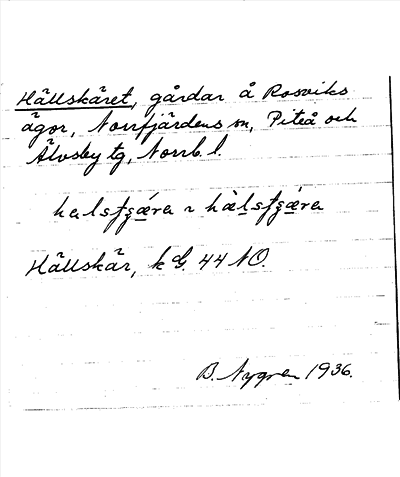 Hällskäret, gårdar å Rosviks
ägor, Norrfjärdens sn, Piteå och
Älvsby tg, Norrb. l.
Hällskär, k G. 44 NO.
B. Nygren 1936.